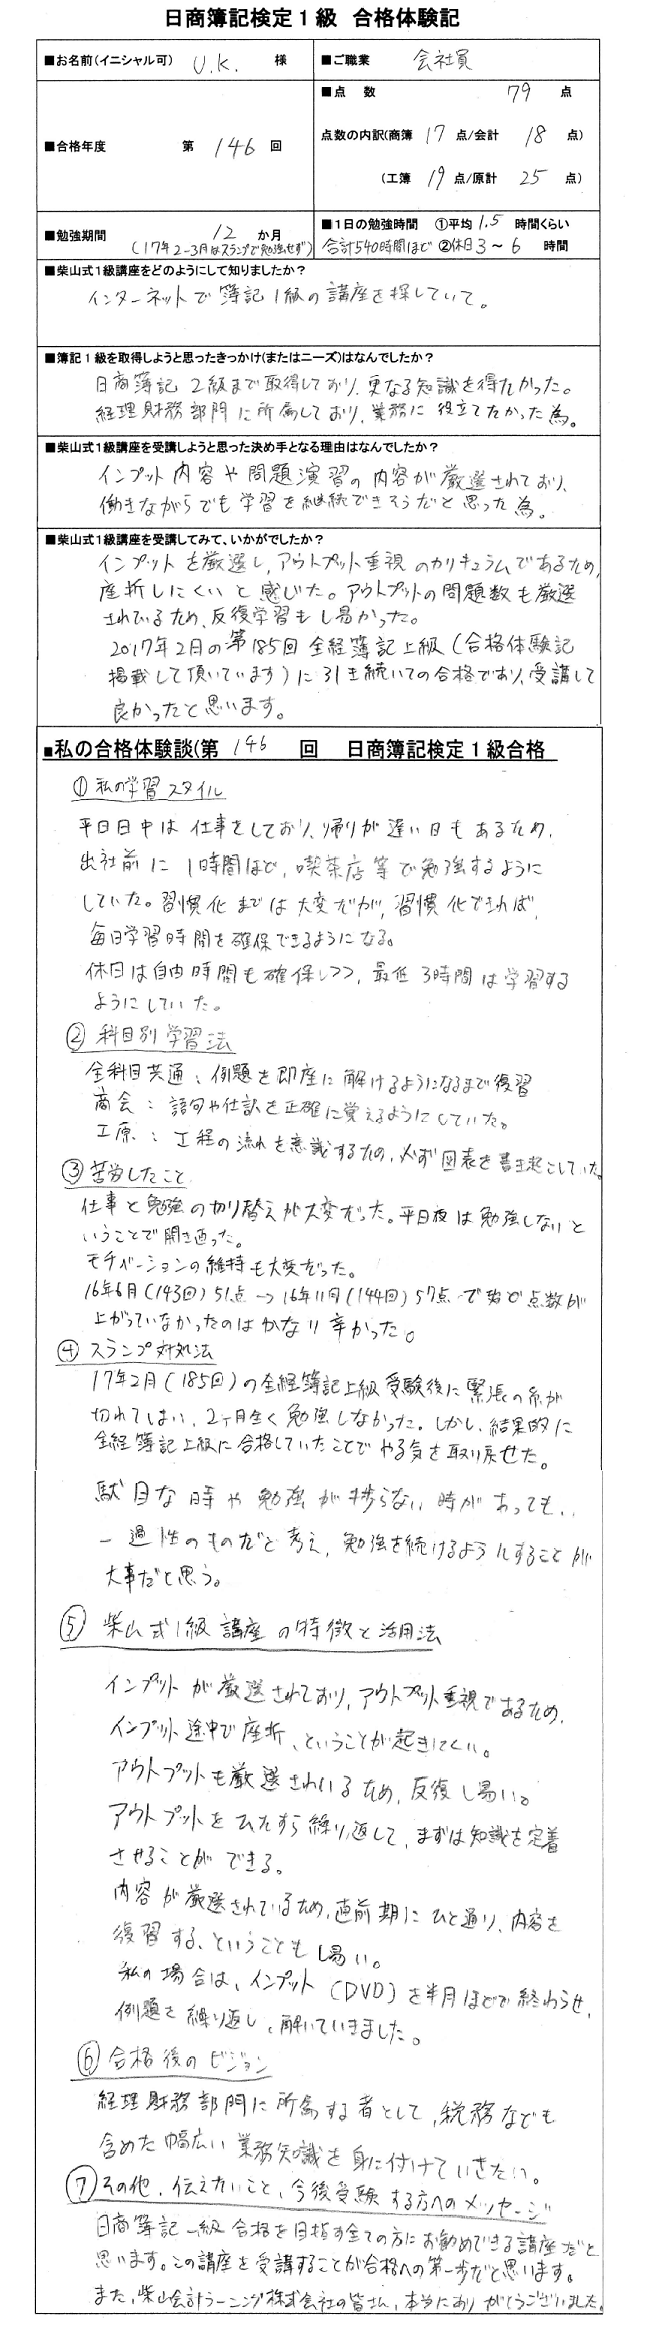 日商簿記検定1級 合格体験記
■お名前(イニシャル可) U.K. 様
■ご職業 会社員
■合格年度 第 146 回
■点 数 79 点
点数の内訳(商簿 17 点/会計 18 点)
(工簿 19 点/原計 25 点)
■勉強期間 12 か月
(17年2-3月はスランプで勉強せず)
■1日の勉強時間 ①平均 1.5 時間くらい
合計540時間ほど ②休日 3〜6 時間
■柴山式1級講座をどのようにして知りましたか?
インターネットで簿記1級の講座を探していて。
■簿記1級を取得しようと思ったきっかけ(またはニーズ)はなんでしたか?
日商簿記2級まで取得しており、更なる知識を得たかった。
経理財務部門に所属しており、業務に役立てたかった為。
■柴山式1級講座を受講しようと思った決め手となる理由はなんでしたか?
インプット内容や問題演習の内容が厳選されており、
働きながらでも学習を継続できそうだと思った為。
■柴山式1級講座を受講してみて、いかがでしたか?
インプットを厳選し、アウトプット重視のカリキュラムであるため、
座折しにくいと感じた。アウトプットの問題数も厳選
されているため、反復学習もし易かった。
2017年2月の第185回全経簿記上級(合格体験記
掲載して頂いています)に引き続いての合格であり、受講して
良かったと思います。
■私の合格体験談(第 146 回 日商簿記検定1級合格
①私の学習スタイル
平日日中は仕事をしており、帰りが遅い日もあるため、
出社前に1時間ほど、喫茶店等で勉強するように
していた。習慣化までは大変だが、習慣化できれば、
毎日学習時間を確保できるようになる。
休日は自由時間も確保しつつ、最低3時間は学習する
ようにしていた。
②科目別学習法
全科目共通:例題を即座に解けるようになるまで復習
商会:語句や仕訳を正確に覚えるようにしていた。
工原:工程の流れを意識するため、必ず図表を書き起こしていた。
③苦労したこと
仕事と勉強の切り替えが大変だった。平日夜は勉強しないと
いうことで開き直った。
モチベーションの維持も大変だった。
16年6月(143回)51点→16年11月(144回)57点で殆ど点数が
上がっていなかったのはかなり辛かった。
④スランプ対処法
17年2月(185回)の全経簿記上級受験後に緊張の糸が
切れてしまい、2ヶ月全く勉強しなかった。しかし、結果的に
全経簿記上級に合格していたことでやる気を取り戻せた。
駄目な時や勉強が捗らない時があっても、
一過性のものだと考え、勉強を続けるようにすることが
大事だと思う。
⑤柴山式1級講座の特徴と活用法
インプットが厳選されており、アウトプット重視であるため、
インプット途中で座折、ということが起きにくい。
アウトプットも厳選されいるため、反復し易い。
アウトプットをひたすら繰り返して、まずは知識を定着
させることができる。
内容が厳選されているため、直前期にひと通り、内容を
復習する、ということもし易い。
私の場合は、インプット(DVD)を半月ほどで終わらせ、
例題を繰り返し、解いていきました。
⑥合格後のビジョン
経理財務部門に所属する者として、税務なども
含めた幅広い業務知識を身に付けていきたい。
⑦その他、伝えたいこと、今後受験する方へのメッセージ
日商簿記一級合格を目指す全ての方にお勧めできる講座だと
思います。この講座を受講することが合格への第一歩だと思います。
また、柴山会計ラーニング株式会社の皆さん、本当にありがとうございました。